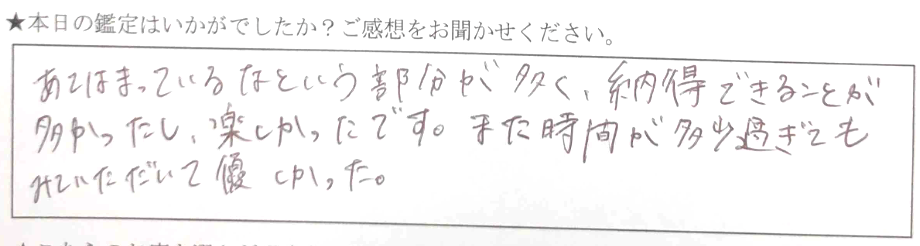 ★本日の鑑定はいかがでしたか？ご感想をお聞かせください。
あてはまっているなという部分が多く、納得できることが
多かったし、楽しかったです。また時間が多少過ぎても
みていただいて優しかった。